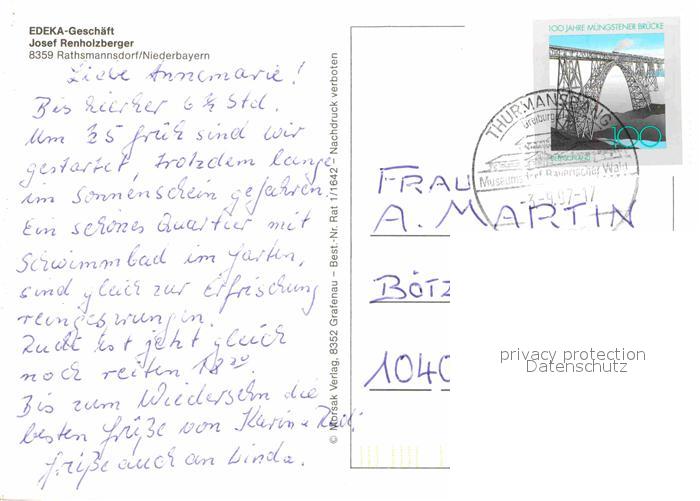 EDEKA-Geschäft
Josef Renholzberger
8359 Rathsmannsdorf/Niederbayern
Liebe Annemarie!
Bis hierher 6½ Std.
Um ½5 früh sind wir
gestartet, trotzdem lange
im Sonnenschein gefahren.
Ein schönes Quartier mit
Schwimmbad im Garten,
sind gleich zur Erfrischung
reingesprungen.
ist jetzt gleich
noch reiten 18
Bis zum Wiedersehn die
besten Grüße von Karin +
Grüße auch an Linda.
© Morsak Verlag, 8352 Grafenau – Best.-Nr. Rat 1/1642 Nachdruck verboten
100 JAHRE MÜNGSTENER BRÜCKE
100
THURMANSBANG
Museumsdorf Bayerischer Wald
-3.-9.97-17
FRAU
A. MARTIN
BÖTZ
1040
privacy protection
Datenschutz